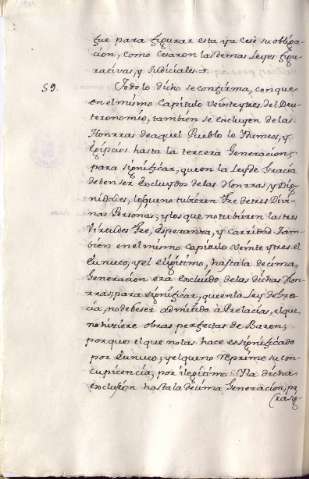 fue para figurar esta ya cesó su obliga-
cion, como cesaron las demas Leyes figu-
racivas, y Judiciales.
59. Todo lo dicho se confirma, con que
en el mismo Capitulo Veinte y tres del Deu-
teronomio, tambien se excluyen de las
Honrras de aquel Pueblo lo Ydumeos, y
Egipcios hasta la tercera Generacion,
para significar, que en la Ley de Gracia
deben ser Excluydos de las Honrras, y Dig-
nidades, los que no tubieren Fee de tres Divi-
nas Personas, y los que no tubieren las tres
Virtudes Fee, Esperanza, y Carridad Tam-
bien en el mismo Capitulo Veinte y tres el
Eunuco, y el Ylegitimo, hasta la decima
Generacion era excluido de las dichas Hon-
rras, para significar, que en la Ley de Gra-
cia, no debe ser admitido à Prelacias, el que
no hiziere obras perfectas de Baron,
porque el que no las hace es significado
por Eunuco, y el que no Reprime su Con-
cupicencia, por ilegitimo. Y la dicha
exclusion hasta la decima Generacion, pa-
(ra sig-